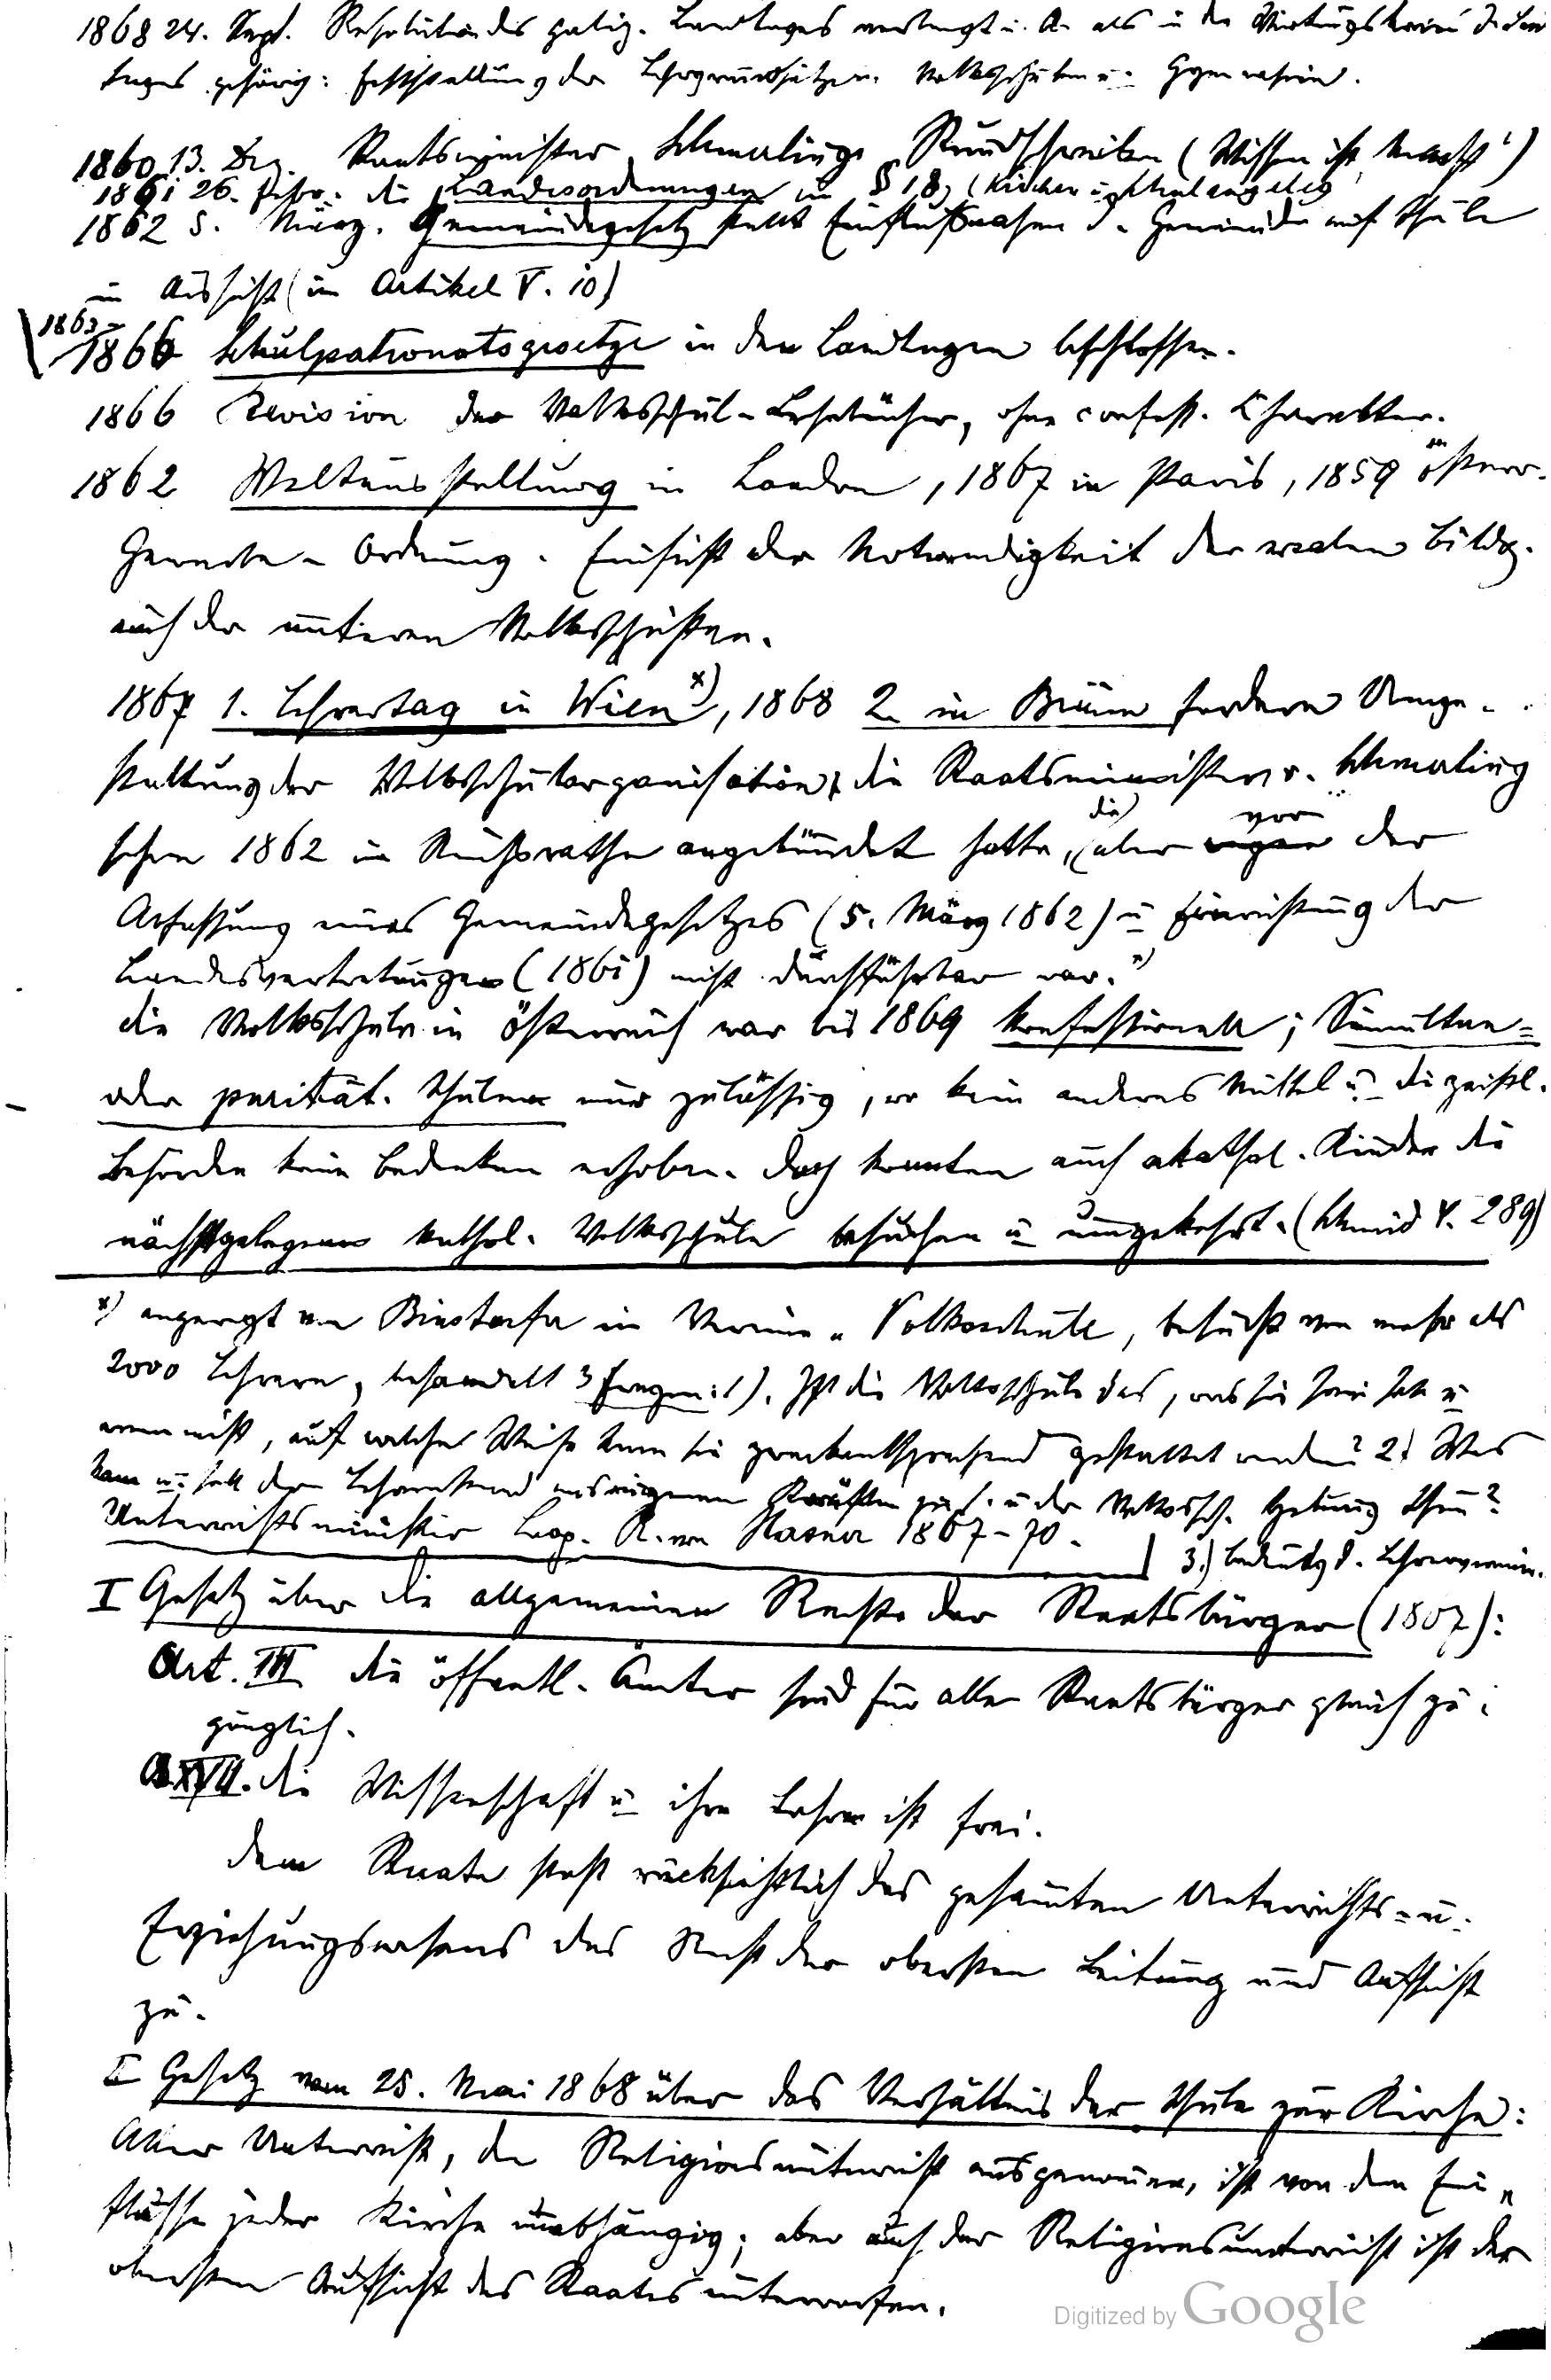 1868 24. Sept. Resolution des galiz. Landtages verlangt u. A. als in den Wirkungskreis d. Land
tages gehörig: Feststellung der Lehrgrundsätze in Volksschulen u. Gymnasien.
1860 13. Dez. Staatsminister Schmerlings Rundschreiben (Wissen ist Macht!)
1861 26. Febr. die Landesordnungen in § 18, (Kirchen u. Schulangeleg
1862 5. März. Gemeindegesetz stellt Einflußnahme d. Gemeinde auf Schule
in Aussicht (im Artikel V. 10)
1863-
1866 Schulpatronatsgesetze in den Landtagen beschlossen.
1866 Revision der Volksschul-Lesebücher, ohne confess. Charakter.
1862 Weltausstellung in London, 1867 in Paris, 1859 österr.
Gewerbe-Ordnung. Einsicht der Notwendigkeit der realen Bildg.
auch der unteren Volksschichten.
1867 1. Lehrertag in Wien x), 1868 2. in Brünn fordern Umge-
staltung der Volksschulorganisation, die Staatsminister v. Schmerling
schon 1862 im Reichsrathe angekündet hatte, (die) aber vor der
Abfassung eines Gemeindegesetzes (5. März 1862) u Einrichtung der
Landesvertretungen (1861) nicht durchführbar war.
die Volksschule in Österreich war bis 1869 konfessionell; Simultan-
oder parität. Schulen nur zulässig, wo kein anderes Mittel u. die geistl.
Behörden keine Bedenken erhoben. Doch konnten auch akathol. Kinder die
nächstgelegene kathol. Volksschule besuchen u umgekehrt. (Schmid V. 289)
x) angeregt von Binstorfer im Vereine „Volksschule, besucht von mehr als
2000 Lehrern, behandelt 3 Fragen: 1). Ist die Volksschule das, was sie sein soll u
wenn nicht, auf welche Weise kann sie zweckentsprechend gestaltet werden? 2) Was
kann u. soll der Lehrerstand aus eigenen Kräften zur d. Volkssch. Hebung thun?
Unterrichtsminister Leop. R. von Hasner 1867-70.
3.) Bedeutg d. Lehrerverein.
I Gesetz über die allgemeinen Rechte der Staatsbürger (1867):
Art. III die öffentl. Ämter sind für alle Staatsbürger gleich zu-
gänglich.
A. XVII. die Wissenschaft u ihre Lehre ist frei.
dem Staate steht rücksichtlich des gesamten Unterrichts- u.
Erziehungswesens das Recht der obersten Leitung und Aufsicht
zu.
II Gesetz vom 25. Mai 1868 über das Verhältnis der Schule zur Kirche:
Aller Unterricht, der Religionsunterricht ausgenommen, ist von dem Ein-
flusse jeder Kirche unabhängig; aber auch der Religionsunterricht ist der
obersten Aufsicht des Staates unterworfen.
Digitized by Google